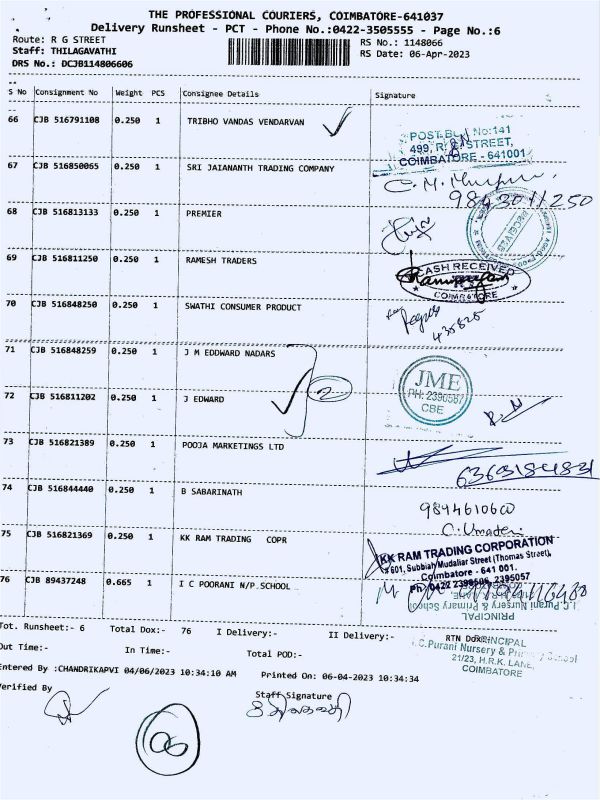 THE PROFESSIONAL COURIERS, COIMBATORE-641037
Delivery Runsheet - PCT - Phone No.:0422-3505555 - Page No.:6
Route: R G STREET
RS No.: 1148066
Staff: THILAGAVATHI
RS Date: 06-Apr-2023
DRS No.: DCJB114806606
S No Consignment No Weight PCS Consignee Details Signature
66 CJB 516791108 0.250 1 TRIBHO VANDAS VENDARVAN
499, STREET,
COIMBATORE - 641001
67 CJB 516850065 0.250 1 SRI JAIANANTH TRADING COMPANY
9843011250
68 CJB 516813133 0.250 1 PREMIER
69 CJB 516811250 0.250 1 RAMESH TRADERS
CASH RECEIVED
COIMBATORE
70 CJB 516848250 0.250 1 SWATHI CONSUMER PRODUCT
71 CJB 516848259 0.250 1 J M EDDWARD NADARS
JME
PH: 2390587
CBE
72 CJB 516811202 0.250 1 J EDWARD
2
73 CJB 516821389 0.250 1 POOJA MARKETINGS LTD
74 CJB 516844440 0.250 1 B SABARINATH
75 CJB 516821369 0.250 1 KK RAM TRADING COPR
KK RAM TRADING CORPORATION
# 601, Subbiah Mudaliar Street (Thomas Street),
Coimbatore - 641 001.
76 CJB 89437248 0.665 1 I C POORANI N/P.SCHOOL
I.C.Purani Nursery & Primary School
PRINCIPAL
Tot. Runsheet:- 6 Total Dox:- 76 I Delivery:- II Delivery:- RTN Dox:-
PRINCIPAL
I.C.Purani Nursery & Primary School
21/23, H.R.K. LANE,
COIMBATORE
Out Time:- In Time:- Total POD:-
Entered By :CHANDRIKAPVI 04/06/2023 10:34:10 AM Printed On: 06-04-2023 10:34:34
Verified By Staff Signature
06